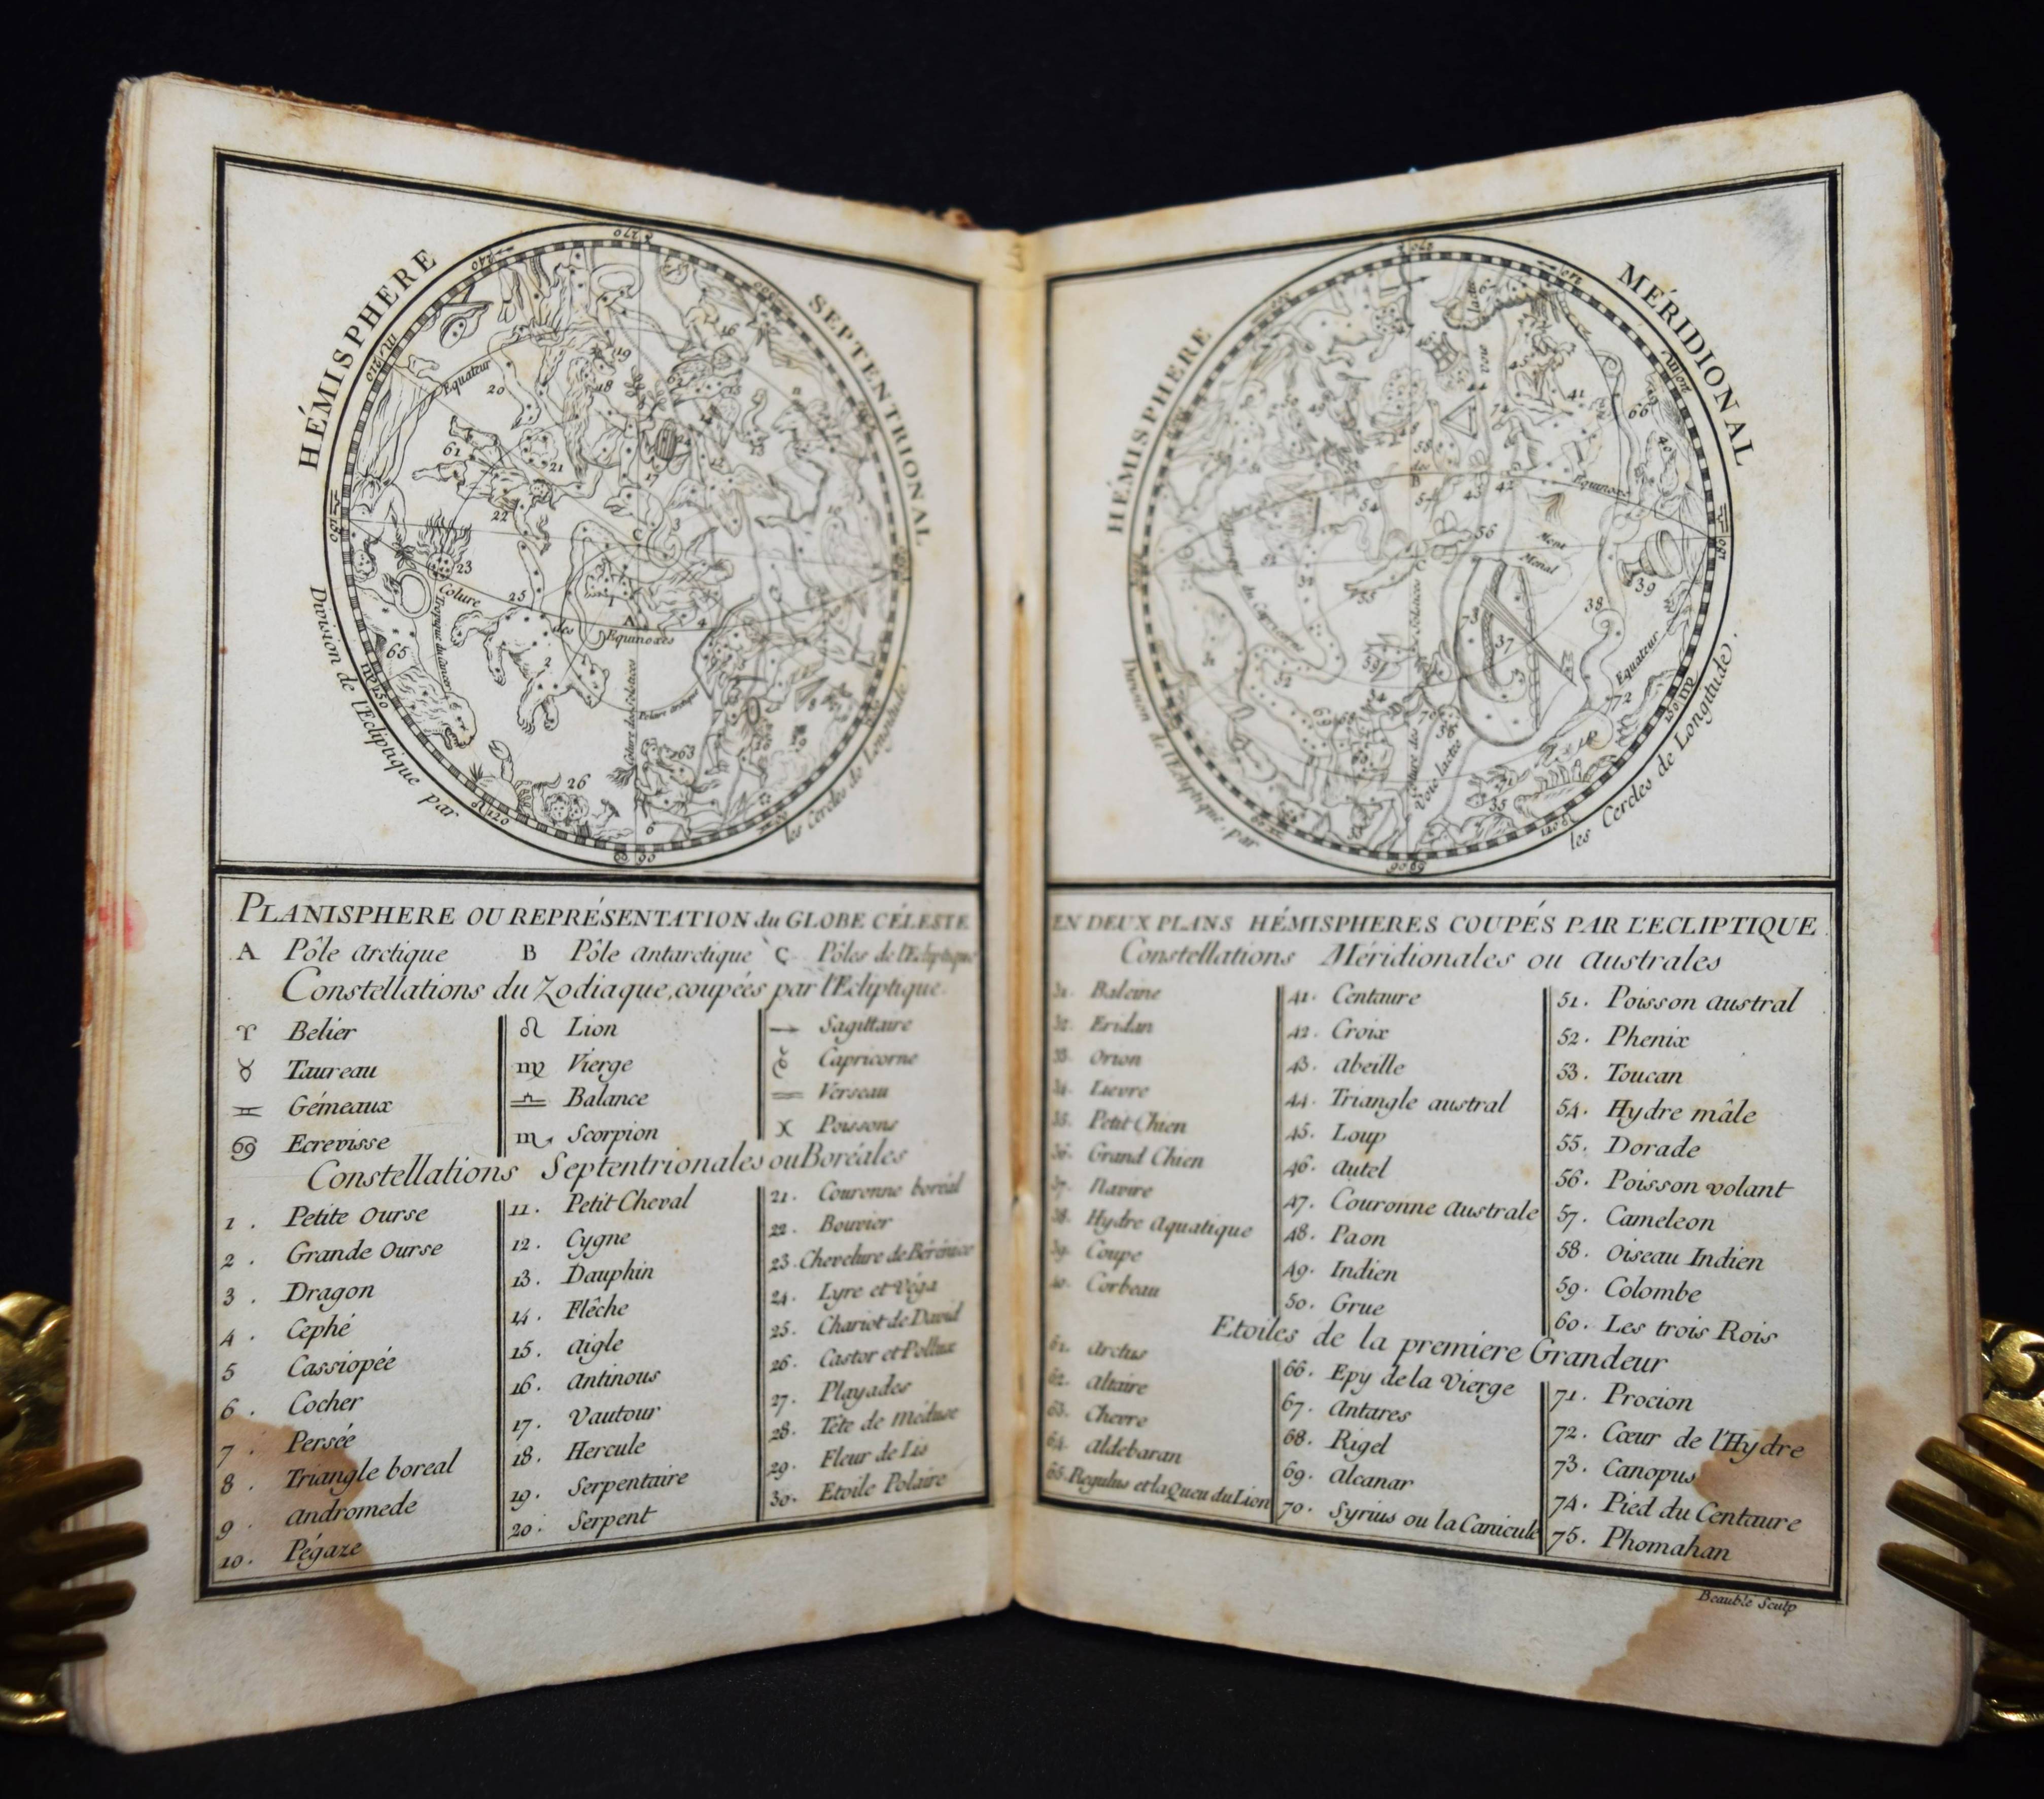 HÉMISPHERE SEPTENTRIONAL
Equateur
Colure
des
Equinoxes
Tropique du Cancer
Colure des Solstices
Polaire Arctique
Division de l'Ecliptique par
les Cercles de Longitude
PLANISPHERE OU REPRÉSENTATION du GLOBE CÉLESTE
A Pôle Arctique B Pôle Antarctique C Pôles de l'Ecliptique
Constellations du Zodiaque, coupées par l'Ecliptique.
♈ Belier
♉ Taureau
♊ Gémeaux
♋ Ecrevisse
♌ Lion
♍ Vierge
♎ Balance
♏ Scorpion
♐ Sagittaire
♑ Capricorne
♒ Verseau
♓ Poissons
Constellations Septentrionales ou Boréales
1. Petite Ourse
2. Grande Ourse
3. Dragon
4. Cephé
5 Cassiopée
6. Cocher
7. Persée
8. Triangle boreal
9. Andromede
10. Pégaze
11. Petit Cheval
12. Cygne
13. Dauphin
14. Flêche
15. Aigle
16. Antinous
17. Vautour
18. Hercule
19. Serpentaire
20. Serpent
21. Couronne boréal
22. Bouvier
23. Chevelure de Bérénice
24. Lyre et Véga
25. Chariot de David
26. Castor et Pollux
27. Playades
28. Tête de Méduse
29. Fleur de Lis
30. Etoile Polaire
HÉMISPHERE MÉRIDIONAL
voie
lactée
des
Equinoxes
Mont
Menal
Tropique du Capricorne
Equateur
Colure des Solstices
Voie lactée
Division de l'Ecliptique par
les Cercles de Longitude.
EN DEUX PLANS HÉMISPHERES COUPÉS PAR L'ECLIPTIQUE.
Constellations Méridionales ou Australes
31. Baleine
32. Eridan
33. Orion
34. Lievre
35. Petit Chien
36. Grand Chien
37. Navire
38. Hydre Aquatique
39. Coupe
40. Corbeau
41. Centaure
42. Croix
43. Abeille
44. Triangle austral
45. Loup
46. Autel
47. Couronne Australe
48. Paon
49. Indien
50. Grue
51. Poisson austral
52. Phenix
53. Toucan
54. Hydre mâle
55. Dorade
56. Poisson volant
57. Cameleon
58. Oiseau Indien
59. Colombe
60. Les trois Rois
Etoiles de la premiere Grandeur
61. Arctus
62. Altaire
63. Chevre
64. Aldebaran
65. Regulus et la Queu du Lion
66. Epy de la Vierge
67. Antares
68. Rigel
69. Alcanar
70. Syrius ou la Canicule
71. Procion
72. Cœur de l'Hydre
73. Canopus
74. Pied du Centaure
75. Phomahan
Beauble Sculp